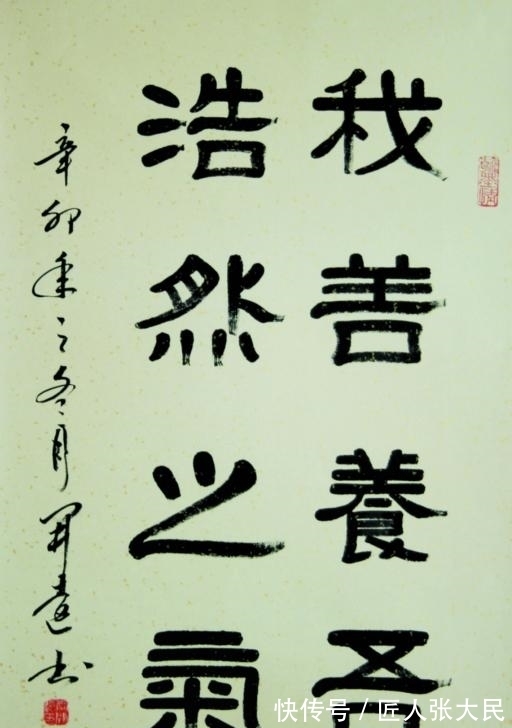 我善養吾
浩然之氣
辛卯年之冬月開達书
快传号/匠人张大民